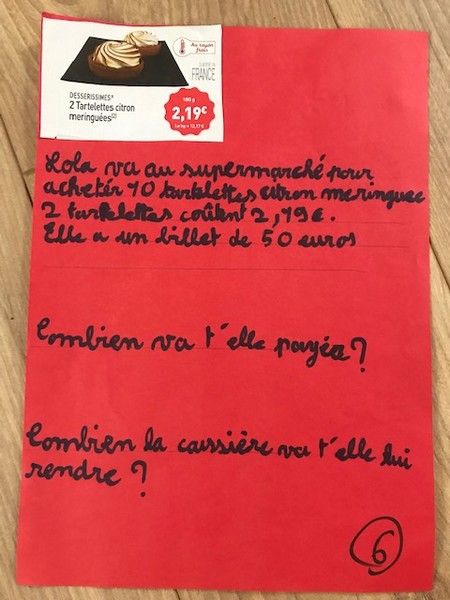 Au rayon
frais
FRANCE
DESSERISSIMES
2 Tartelettes citron
meringuées(2)
180 g
2,19€
Le kg = 12,17 €
Lola va au supermarché pour
acheter 10 tartelettes citron meringuee
2 tartelettes coûtent 2,19€.
Elle a un billet de 50 euros
Combien va t'elle payée?
Combien la caissière va t'elle lui
rendre ?
6